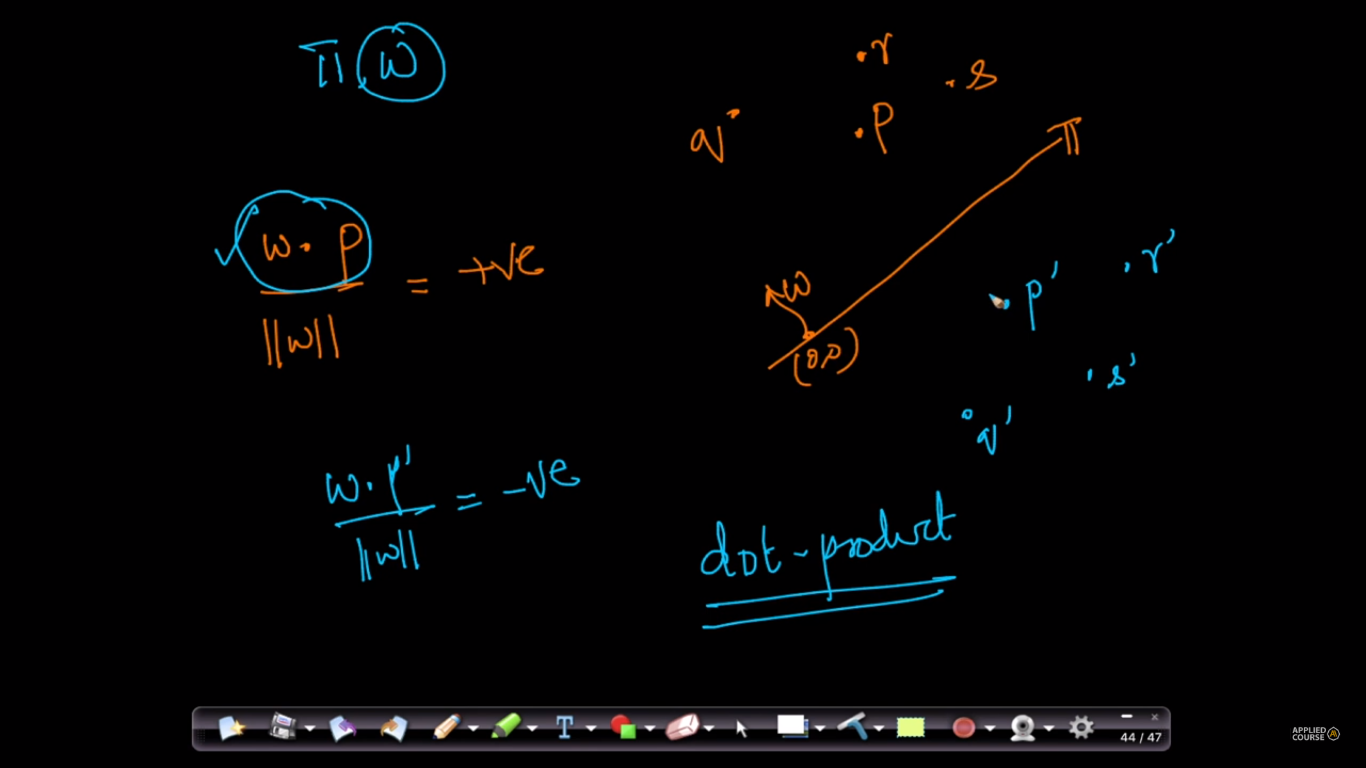 π w
w . p
———— = +ve
||w||
w . p'
———— = -ve
||w||
. r
. s
q .
. p
π
w
(0,0)
. p'
. r'
. s'
. q'
dot-product
T
44 / 47
APPLIED
COURSE